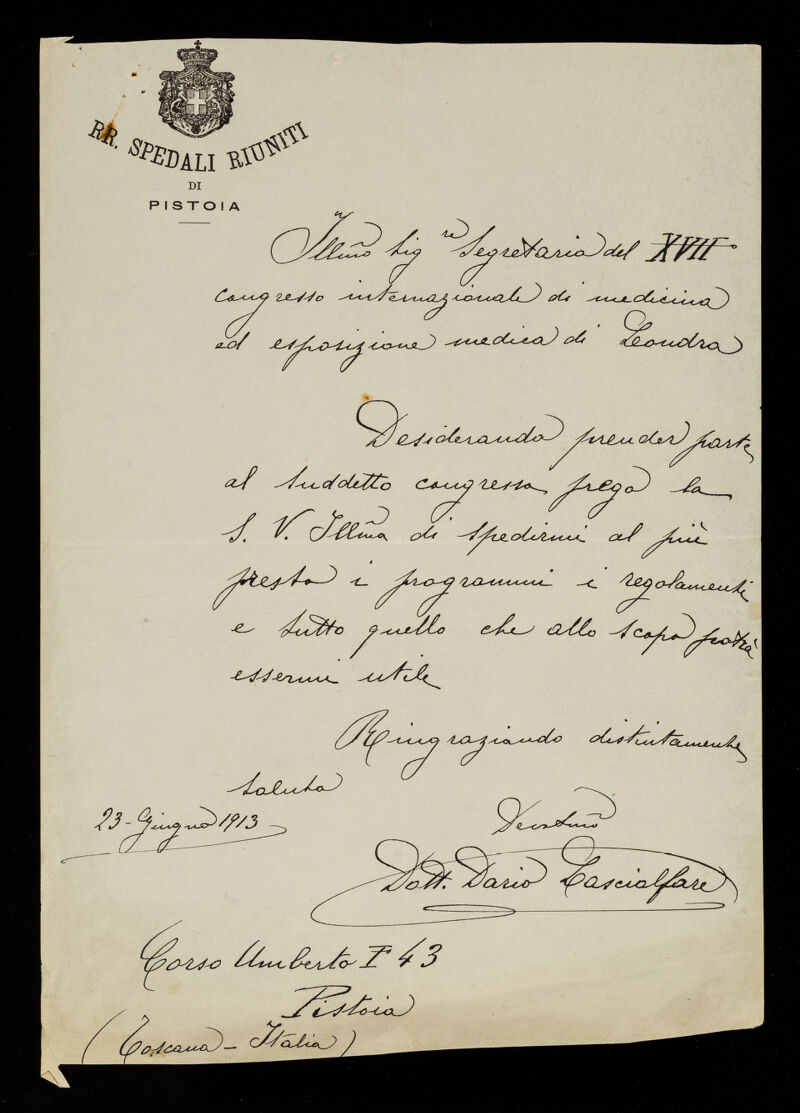 RR. SPEDALI RIUNITI
DI
PISTOIA
Illmo Sigre Segretario del XVII°
congresso internazionale di medicina
ed esposizione medica di Londra
Desiderando prender parte
al suddetto congresso prego la
S. V. Illma di spedirmi al più
presto i programmi i regolamenti
e tutto quello che allo scopo potrà
essermi utile
Ringraziando distintamente
saluto
23 - Giugno 1913
Devotmo
Dott. Dario Cascialfare
Corso Umberto I° 43
Pistoia
(Toscana - Italia)